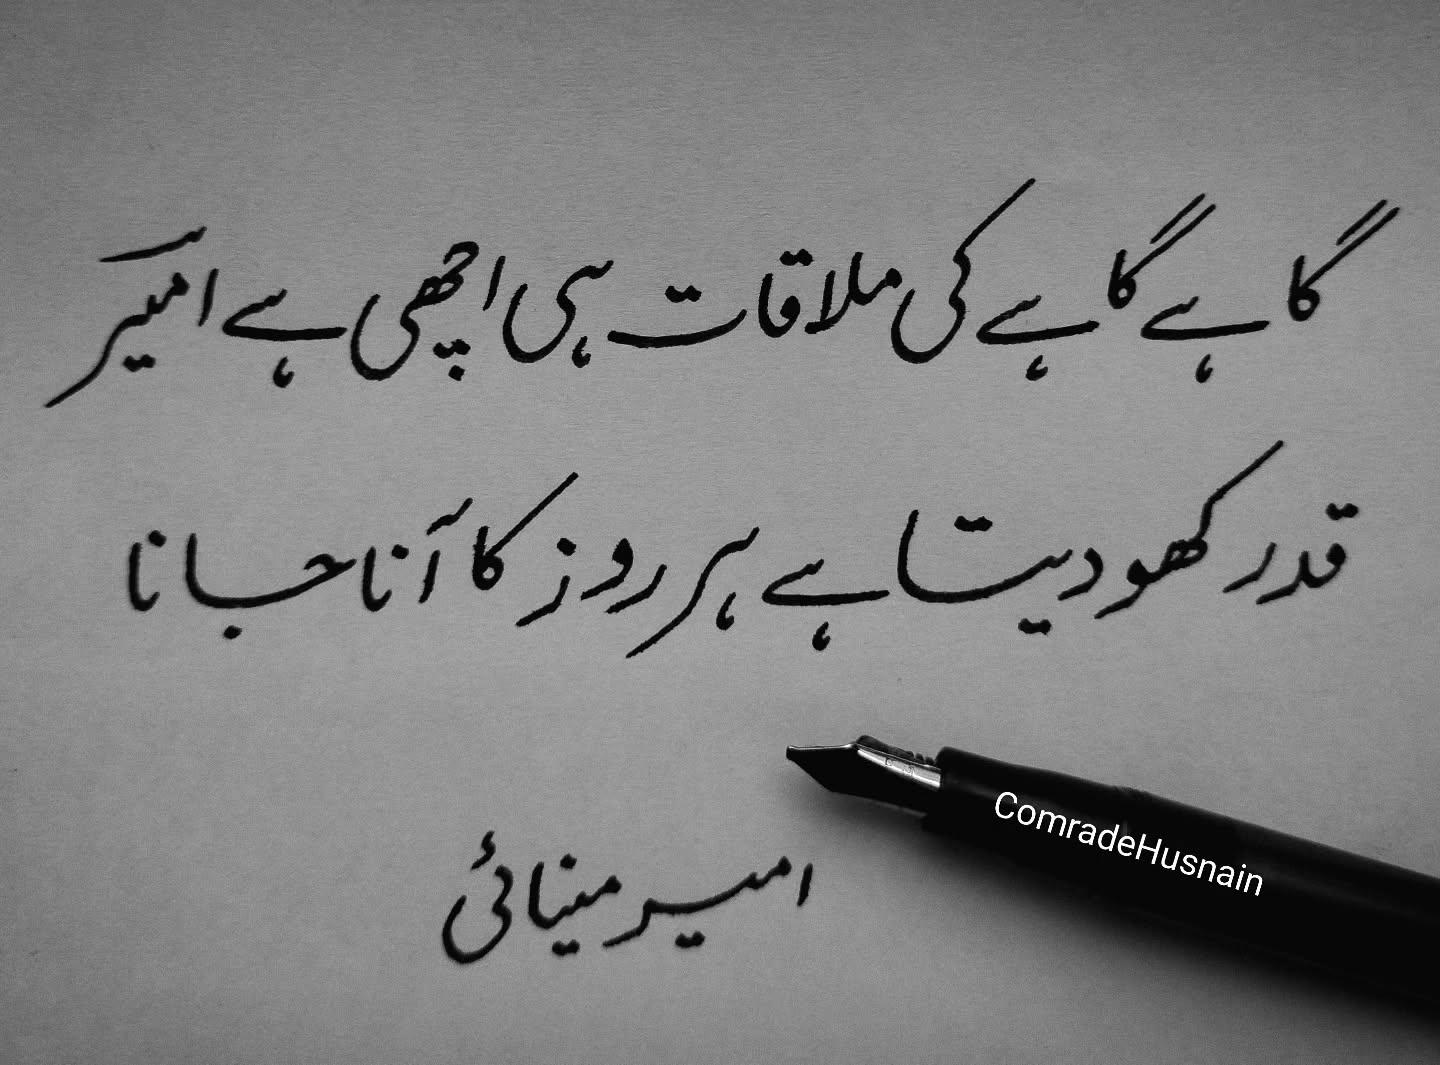 گاہے گاہے کی ملاقات ہی اچھی ہے امیرؔ
قدر کھو دیتا ہے ہر روز کا آنا جانا
امیر مینائی
ComradeHusnain